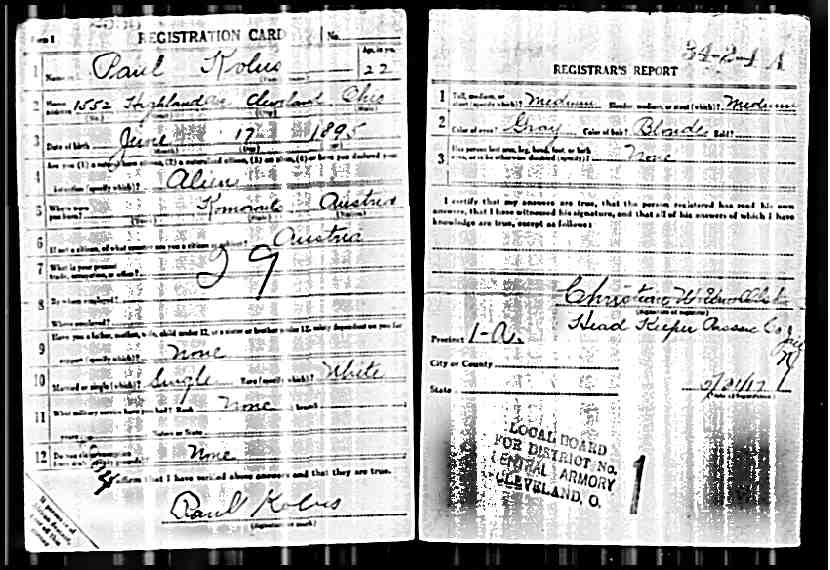 Form 1 REGISTRATION CARD No.
1 Name Paul Kolus Age, in yrs. 22
2 Home address 1552 Highland Av Cleveland Ohio
3 Date of birth June 17 1895
4 Are you (1) a natural-born citizen, (2) a naturalized citizen, (3) an alien, (4) or have you declared your
intention (specify which)? Alien
5 Where were you born? Austria
6 If not a citizen, of what country are you a citizen or subject? Austria
7 What is your present trade, occupation, or office? 29
8 By whom employed?
Where employed?
9 Have you a father, mother, wife, child under 12, or a sister or brother under 12, solely dependent on you for
support (specify which)? None
10 Married or single (which)? Single Race (specify which)? White
11 What military service have you had? Rank None branch
years Nation or State
12 Do you claim exemption from draft (specify grounds)? None
I affirm that I have verified above answers and that they are true.
Paul Kolus
(Signature or mark)
34-2-1 A
REGISTRAR'S REPORT
1 Tall, medium, or short (specify which)? Medium Slender, medium, or stout (which)? Medium
2 Color of eyes? Gray Color of hair? Blonde Bald?
3 Has person lost arm, leg, hand, foot, or both eyes, or is he otherwise disabled (specify)? None
I certify that my answers are true, that the person registered has read his own
answers, that I have witnessed his signature, and that all of his answers of which I have
knowledge are true, except as follows:
Christian W.
(Signature of registrar)
Head Keeper Co Jail
Precinct 1-A.
City or County
State
(Date of registration)
LOCAL BOARD
FOR DISTRICT NO. 1
CENTRAL ARMORY
CLEVELAND, O.